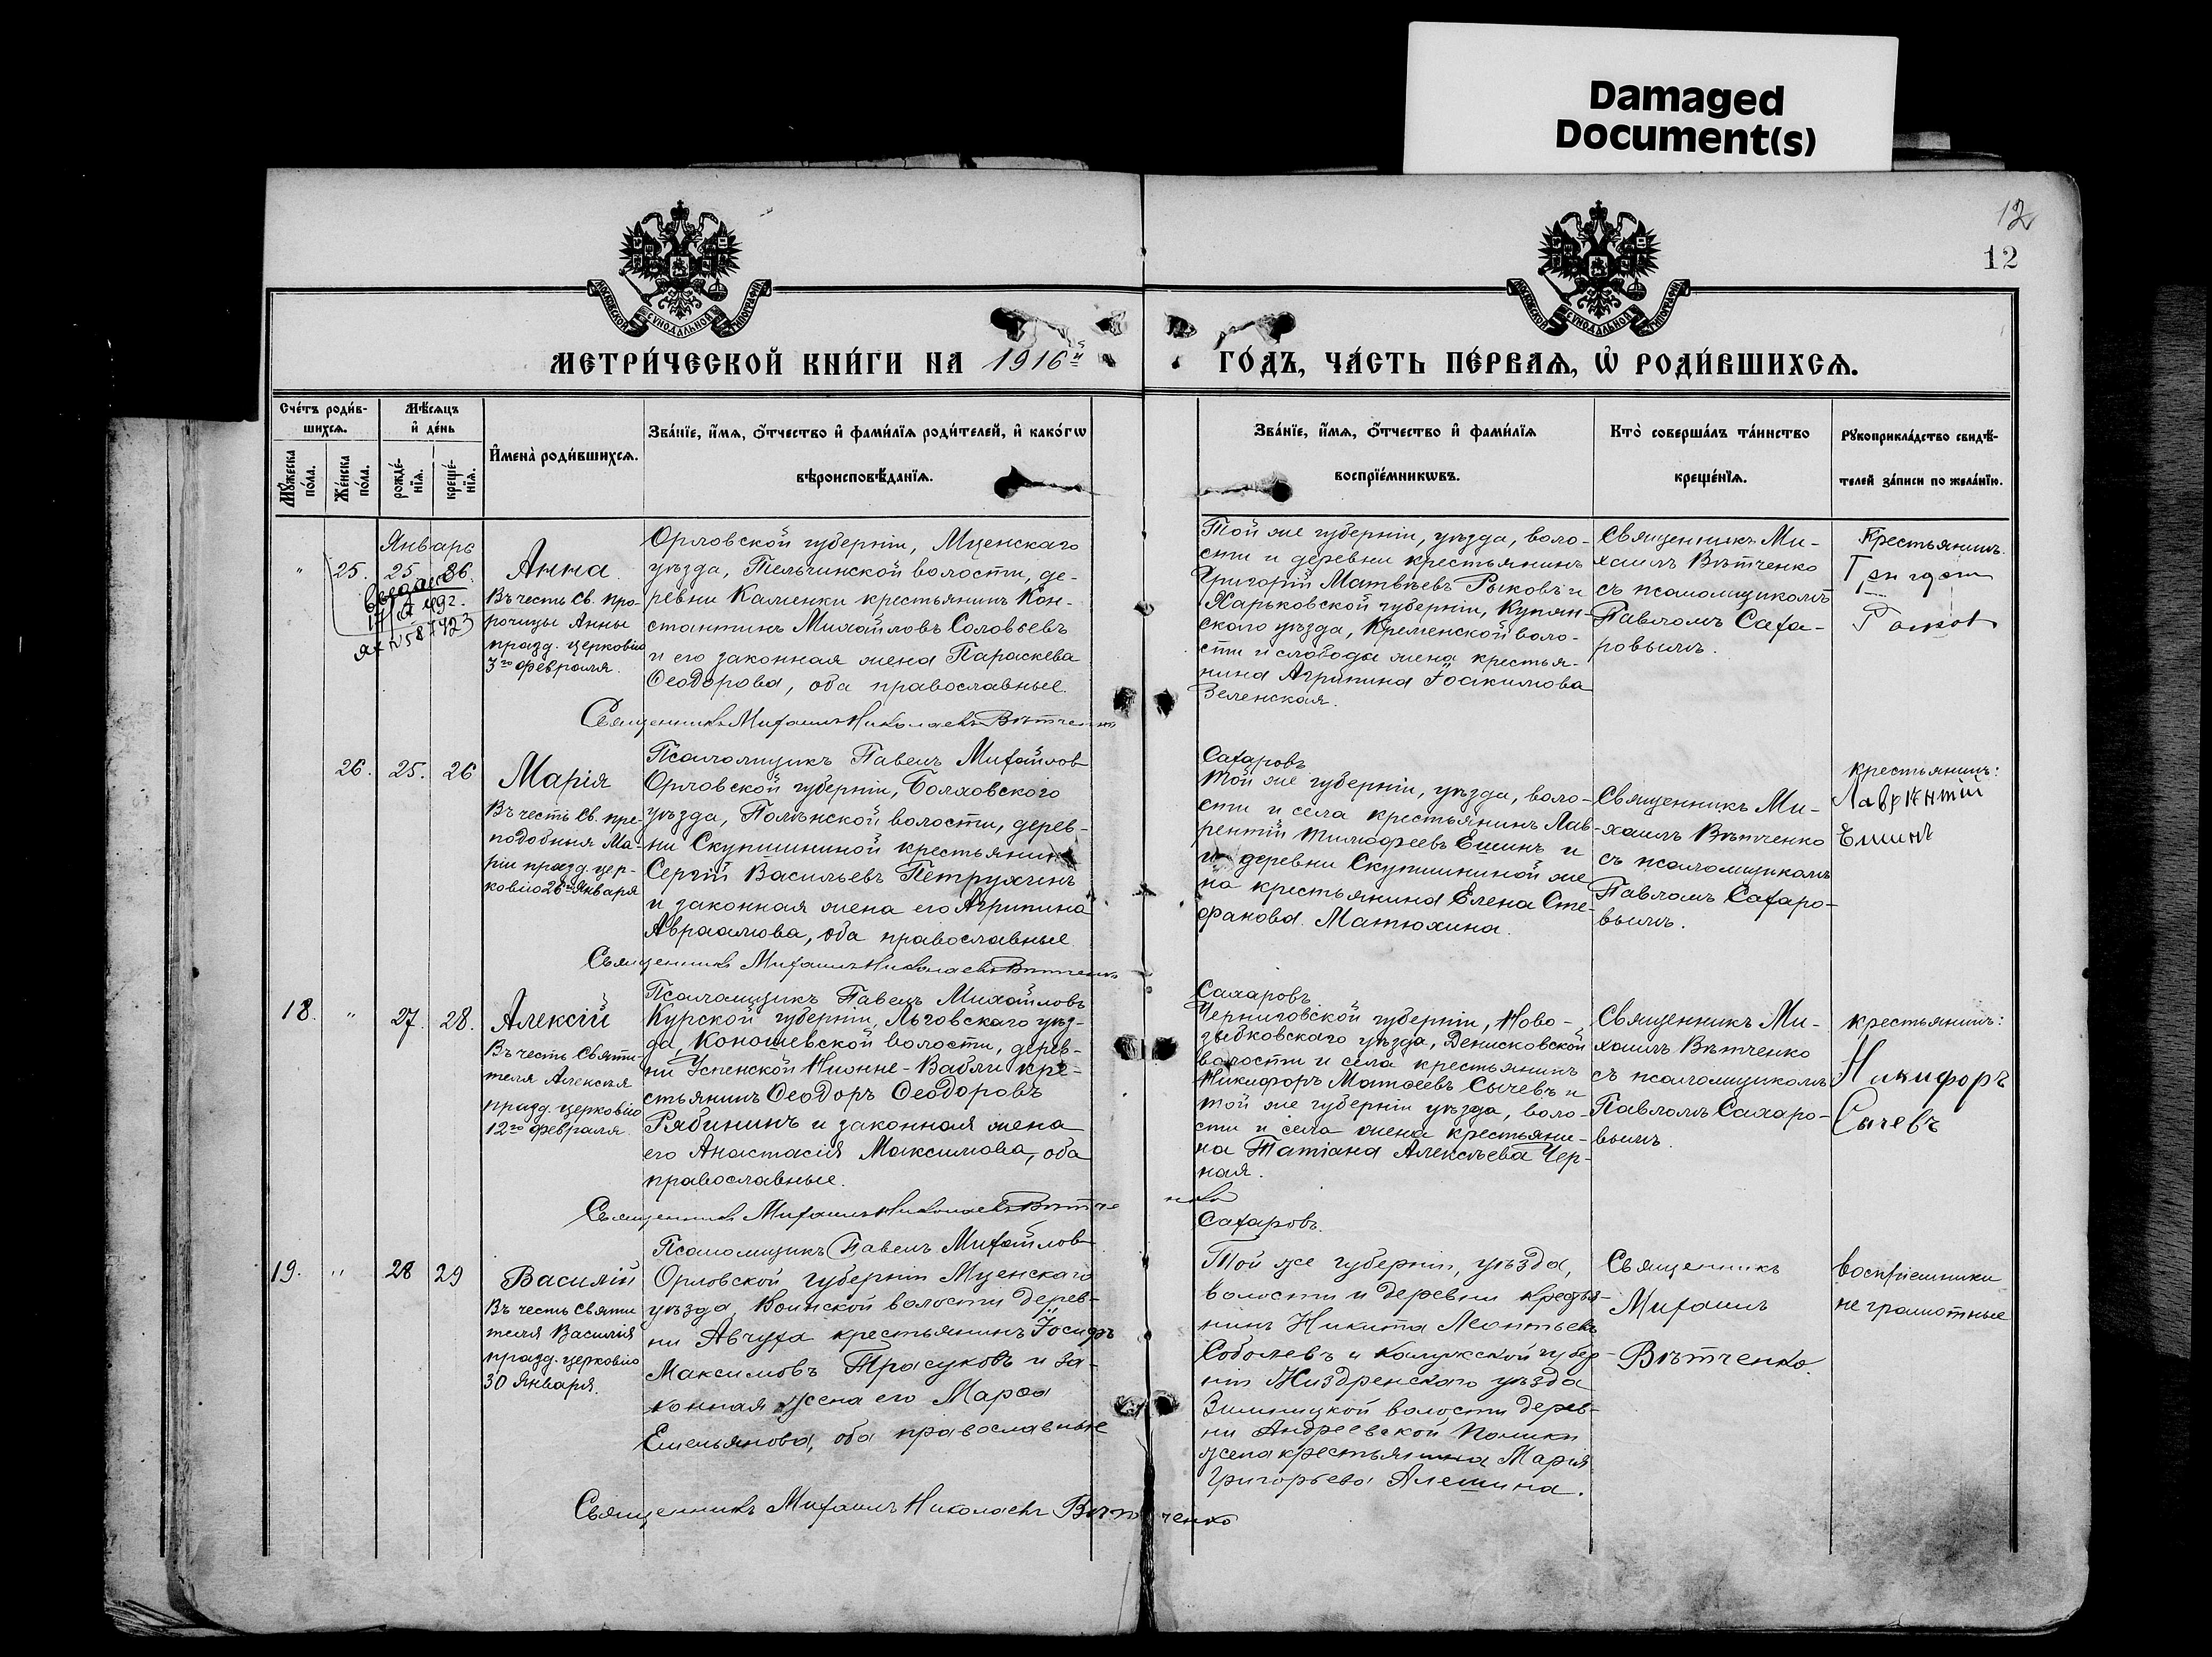 Damaged
Document(s)
12
12
МОСКОВСКОЙ СѴНОДАЛЬНОЙ ТИПОГРАФІИ
МОСКОВСКОЙ СѴНОДАЛЬНОЙ ТИПОГРАФІИ
МЕТРИ́ЧЕСКОЙ КНИ́ГИ НА 1916й
ГО́ДЪ, ЧА́СТЬ ПЕ́РВАѦ, Ѡ҆ РОДИ́ВШИХСѦ.
Сче́тъ роди́в-
шихсѧ.
Мꙋ́жеска по́ла.
Же́нска по́ла.
Мѣ́сѧцъ
и҆ де́нь
рожде́-
нїѧ.
креще́-
нїѧ.
И҆мена̀ роди́вшихсѧ.
Зва́нїе, и҆́мѧ, ѻ҆́тчество и҆ фами́лїѧ роди́телей, и҆ како́гѡ
вѣроисповѣ́данїѧ.
Зва́нїе, и҆́мѧ, ѻ҆́тчество и҆ фами́лїѧ
воспрїе́мникѡвъ.
Кто̀ соверша́лъ та́инство
креще́нїѧ.
Рꙋкоприкла́дство свидѣ́-
телей за́писи по жела́нїю.
Январь
" 25. 25 26.
17/IX 49г.
ЯК №587423
Анна.
Въ честь Св. про-
рочицы Анны
празд. церковію
3го февраля.
Орловской губерніи, Мценскаго
уѣзда, Тельчинской волости, де-
ревни Каменки крестьянинъ Кон-
стантинъ Михайловъ Соловьевъ
и его законная жена Параскева
Ѳеодорова, оба православные.
Священникъ Михаилъ Николаевъ Вѣтченко
Псаломщикъ Павелъ Михайлов
Той же губерніи, уѣзда, воло-
сти и деревни крестьянинъ
Григорій Матвѣевъ Рыковъ и
Харьковской губерніи, Купян-
скаго уѣзда, Кременской воло-
сти и слобода жена крестья-
нина Агрипина Іоакимова
Зеленская.
Сахаровъ
Священникъ Ми-
хаилъ Вѣтченко
съ псаломщикомъ
Павломъ Саха-
ровымъ.
Крестьянинъ.
26. 25. 26
Марія
Въ честь Св. пре-
подобныя Ма-
ріи празд. цер-
ковію 26го Января
Орловской губерніи, Болховского
уѣзда, Полѣнской волости, дерев-
ни Скупшининой крестьянинъ
Сергій Васильевъ Петрухинъ
и законная жена его Агрипина
Авраамова, оба православные
Священникъ Михаилъ Николаевъ Вѣтченко
Псаломщикъ Павелъ Михайловъ
Той же губерніи, уѣзда, воло-
сти и села крестьянинъ Лав-
рентій Тимофеевъ Ешинъ и
деревни Скупшининой же
на крестьянина Елена Сте-
фанова Матюхина.
Сахаровъ
Священникъ Ми-
хаилъ Вѣтченко
съ псаломщикомъ
Павломъ Сахаро-
вымъ.
крестьянинъ:
Лаврентій
Ешинъ
18. " 27. 28.
Алексій
Въ честь Святи-
теля Алексія
празд. церковію
12го февраля
Курской губерніи, Льговскаго уѣз-
да, Конышевской волости, дерев-
ни Успенской Нижне-Вабли кре-
стьянинъ Ѳеодоръ Ѳеодоровъ
Рябининъ и законная жена
его Анастасія Максимова, оба
православные.
Священникъ Михаилъ Николаевъ Вѣтче
нко
Псаломщикъ Павелъ Михайлов
Сахаровъ.
Черниговской губерніи, Ново-
зыбковскаго уѣзда, Денисковской
волости и села крестьянинъ
Никифоръ Матѳеевъ Сычевъ и
той же губерніи уѣзда, воло-
сти и села жена крестьяни-
на Татіана Алексѣева Чер-
ная.
Священникъ Ми-
хаилъ Вѣтченко
съ псаломщикомъ
Павломъ Сахаро-
вымъ.
крестьянинъ:
Никифоръ
Сычевъ
19. " 28 29
Василій
Въ честь Святи
теля Василія
празд. церковію
30 Января.
Орловской губерніи Мценскаго
уѣзда, Воинской волости дерев-
ни Авчуха крестьянинъ Іосифъ
Максимовъ Трасуковъ и за-
конная жена его Марѳа
Емельянова, оба православные
Священникъ Михаилъ Николаевъ Вѣтченко
Той же губерніи, уѣзда,
волости и деревни крестья-
нинъ Никита Леонтьевъ
Соболевъ и Калужской губер-
ніи Жиздренскаго уѣзда
Зимницкой волости дерев-
ни Андреевской Поляки
жена крестьянина Марія
Григорьева Алешина.
Священникъ
Михаилъ
Вѣтченко.
воспріемники
не грамотные